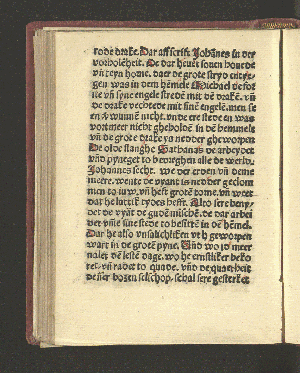 rode drake. Dar aff scrift Johānes in der
vorbolēheit. De dar heuet souen houede
vñ teyn horne. daer de grote stryd entye=
gen was in dem hēmele Michael vefor
ne vñ syne engele stredē mit dē drakē. vñ
de drake vechtede mit sinē engelē. men se
en wunnē nicht. vn de ere stede en was
vort meer nicht gheholdē in dē hemmele
vñ de grote drake ys nedder gheworpen
De olde slanghe Sathanas de arbeydet
vnd pyneget to bedreghen alle de werld.
Johannes secht. we der erden vñ deme
meere. wente de vyant is nedder geclom
men to iuw. vñ hefft grotē torne. vñ weet
dat he luttik tydes hefft. Also sere beny=
det de vyāt de gudē mischē. de dar arbei
der vmē sine stede to besittē in dē hēmel.
Dar he also vnsalichliken vth geworpen
wart in de grote pyne. Und wo id meer
nalet dē lestē dage. wo he ernstliker beko
ret. vñ radet to quade. vñ de quatheit
de siner bozen selschop. schal sere gesterket